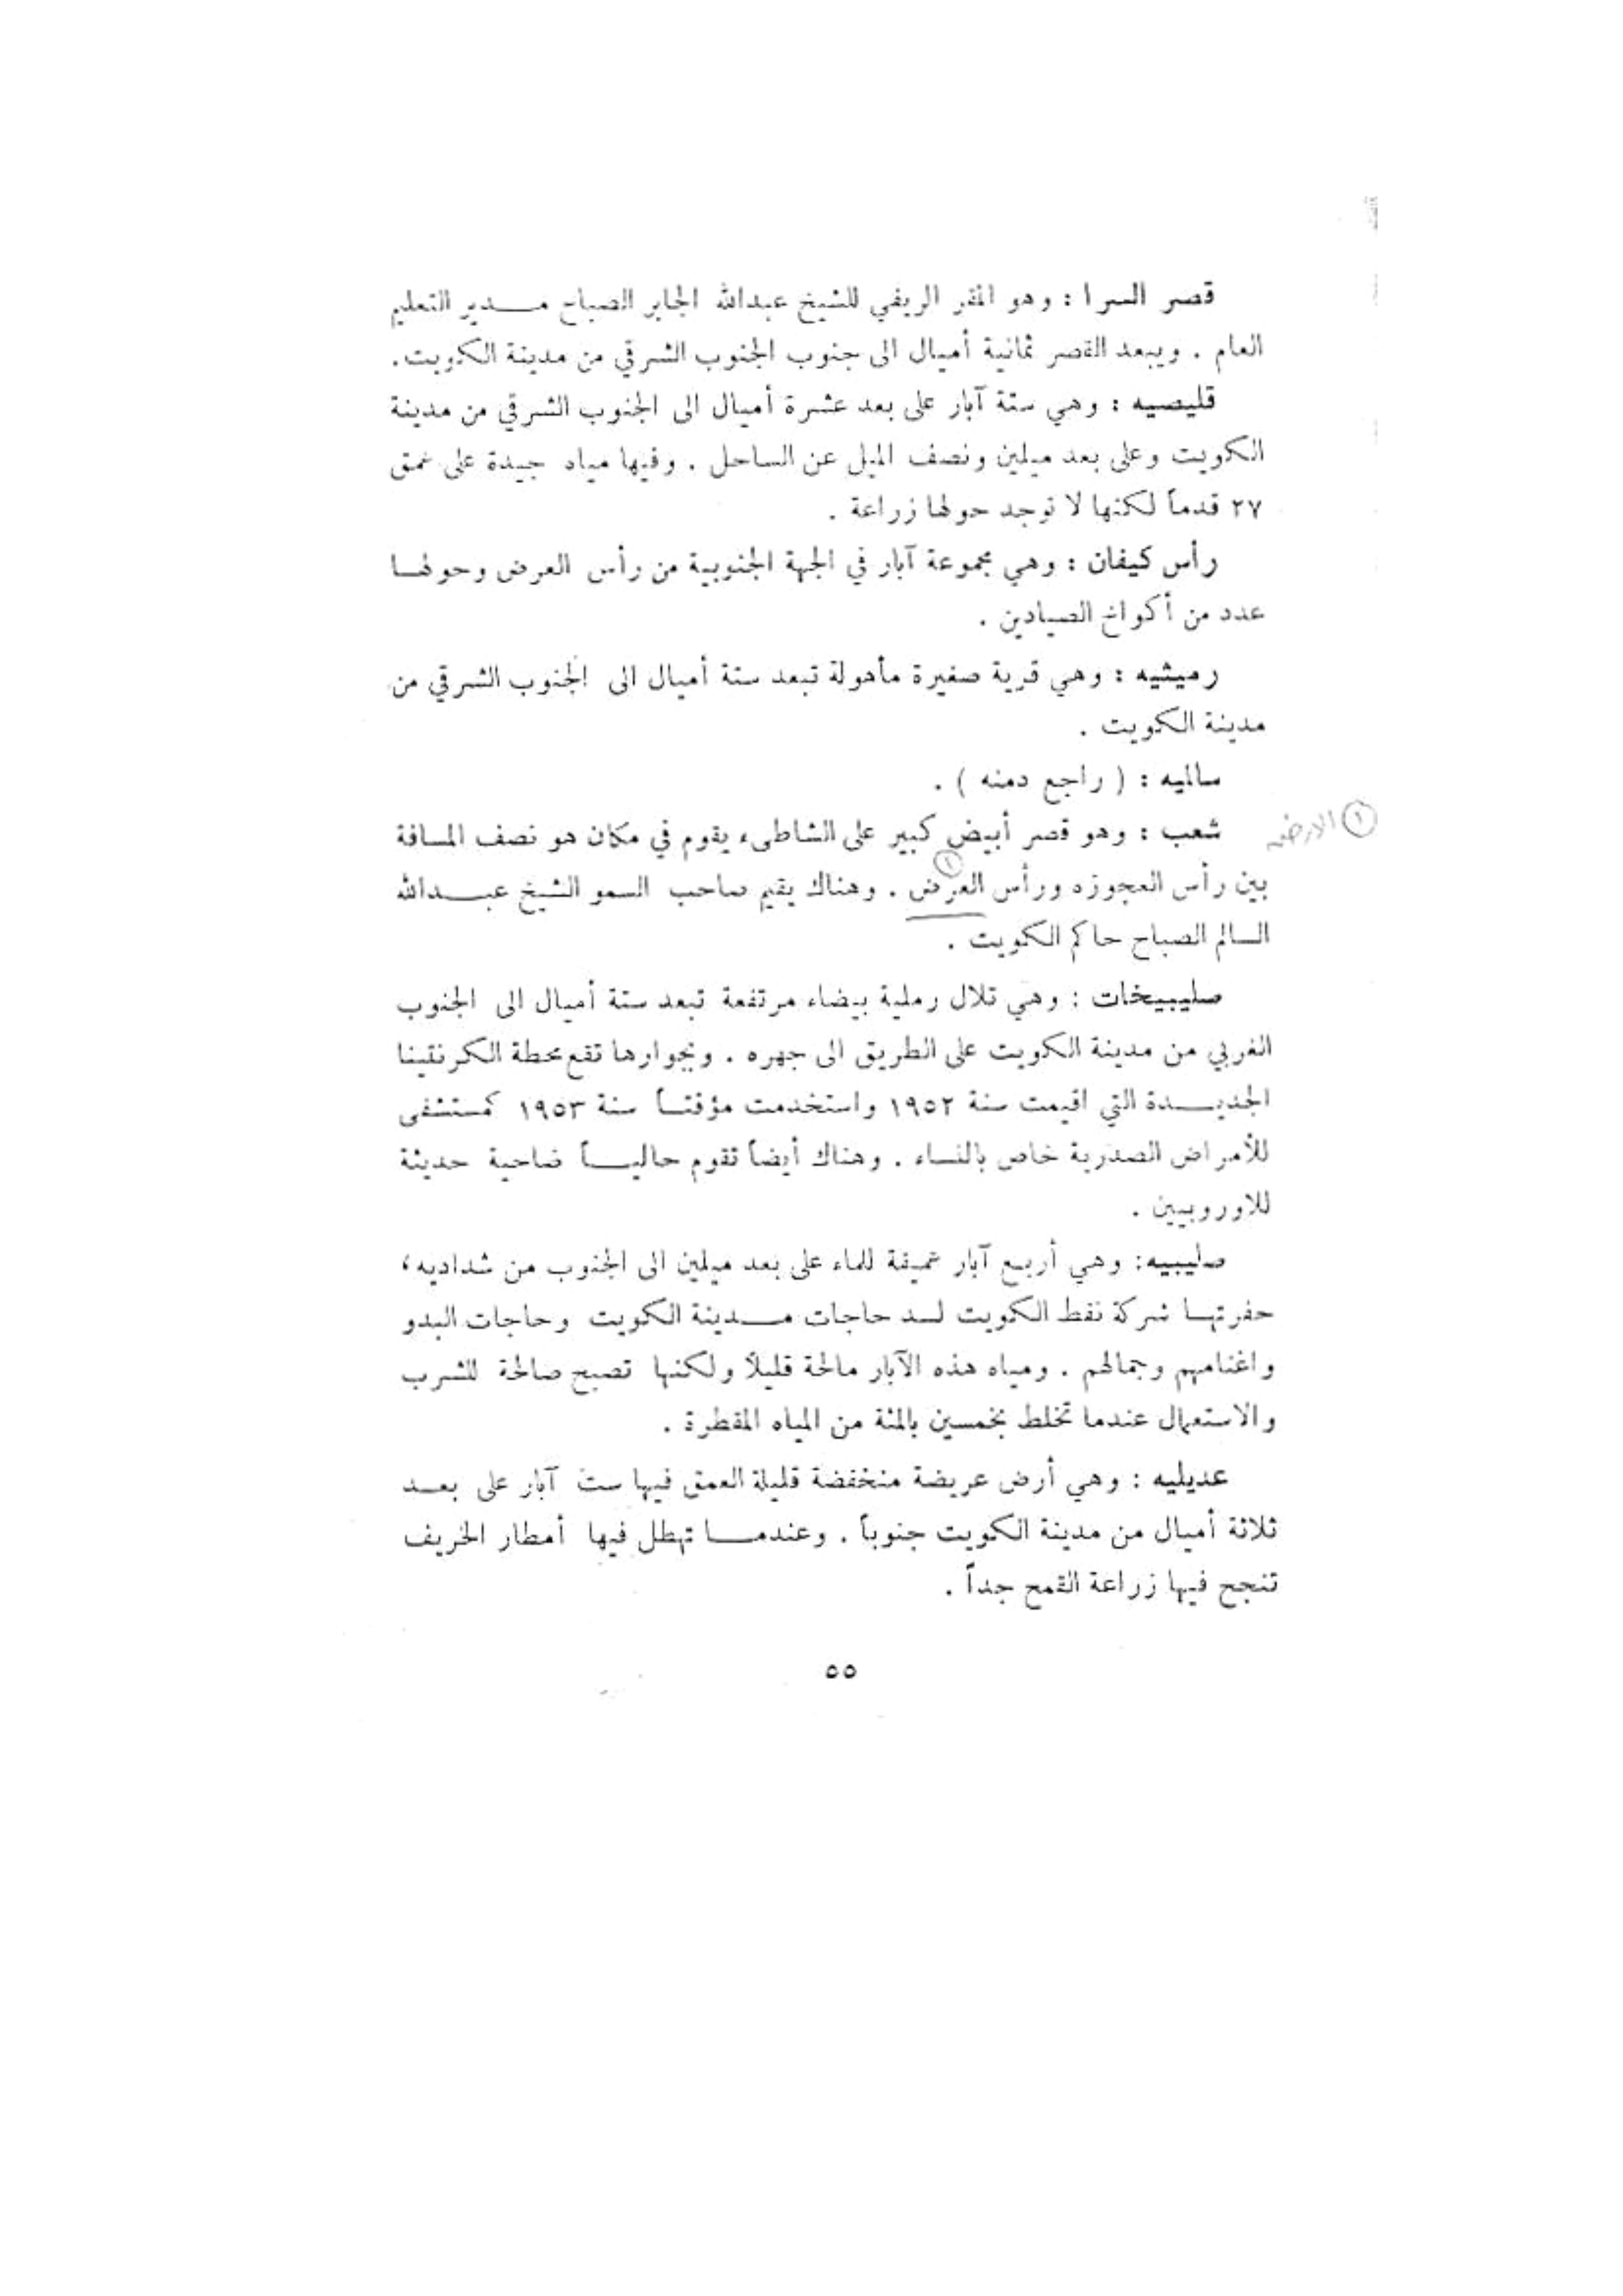 قصر السرا : وهو المقر الريفي للشيخ عبدالله الجابر الصباح مـــدير التعليم
العام . ويبعد القصر ثمانية أميال الى جنوب الجنوب الشرقي من مدينة الكويت.
قليصيه : وهي ستة آبار على بعد عشرة أميال الى الجنوب الشرقي من مدينة
الكويت وعلى بعد ميلين ونصف الميل عن الساحل . وفيها مياه جيدة على عمق
٢٧ قدماً لكنها لا توجد حولها زراعة .
رأس كيفان : وهي مجموعة آبار في الجهة الجنوبية من رأس العرض وحولهــا
عدد من أكواخ الصيادين .
رميثيه : وهي قرية صغيرة مأهولة تبعد ستة أميال الى الجنوب الشرقي من
مدينة الكويت .
سالميه : ( راجع دمنه ) .
شعب : وهو قصر أبيض كبير على الشاطىء يقوم في مكان هو نصف المسافة
① الارض
بين رأس العجوزه ورأس العرض ① . وهناك يقيم صاحب السمو الشيخ عبـــدالله
السالم الصباح حاكم الكويت .
صليبيخات : وهي تلال رملية بيضاء مرتفعة تبعد ستة أميال الى الجنوب
الغربي من مدينة الكويت على الطريق الى جهره . وبجوارها تقع محطة الكرنتينا
الجديـــدة التي اقيمت سنة ١٩٥٢ واستخدمت مؤقتــاً سنة ١٩٥٣ كمستشفى
للأمراض الصدرية خاص بالنساء . وهناك أيضاً تقوم حاليـــاً ضاحية حديثة
للاوروبيين .
صليبيه: وهي أربع آبار عميقة للماء على بعد ميلين الى الجنوب من شداديه،
حفرتهــا شركة نفط الكويت لسد حاجات مـــدينة الكويت وحاجات البدو
واغنامهم وجمالهم . ومياه هذه الآبار مالحة قليلاً ولكنها تصبح صالحة للشرب
والاستعمال عندما تخلط بخمسين بالمئة من المياه المقطرة .
عديليه : وهي أرض عريضة منخفضة قليلة العمق فيها ست آبار على بعـــد
ثلاثة أميال من مدينة الكويت جنوباً . وعندمـــا تهطل فيها أمطار الخريف
تنجح فيها زراعة القمح جداً .
٥٥